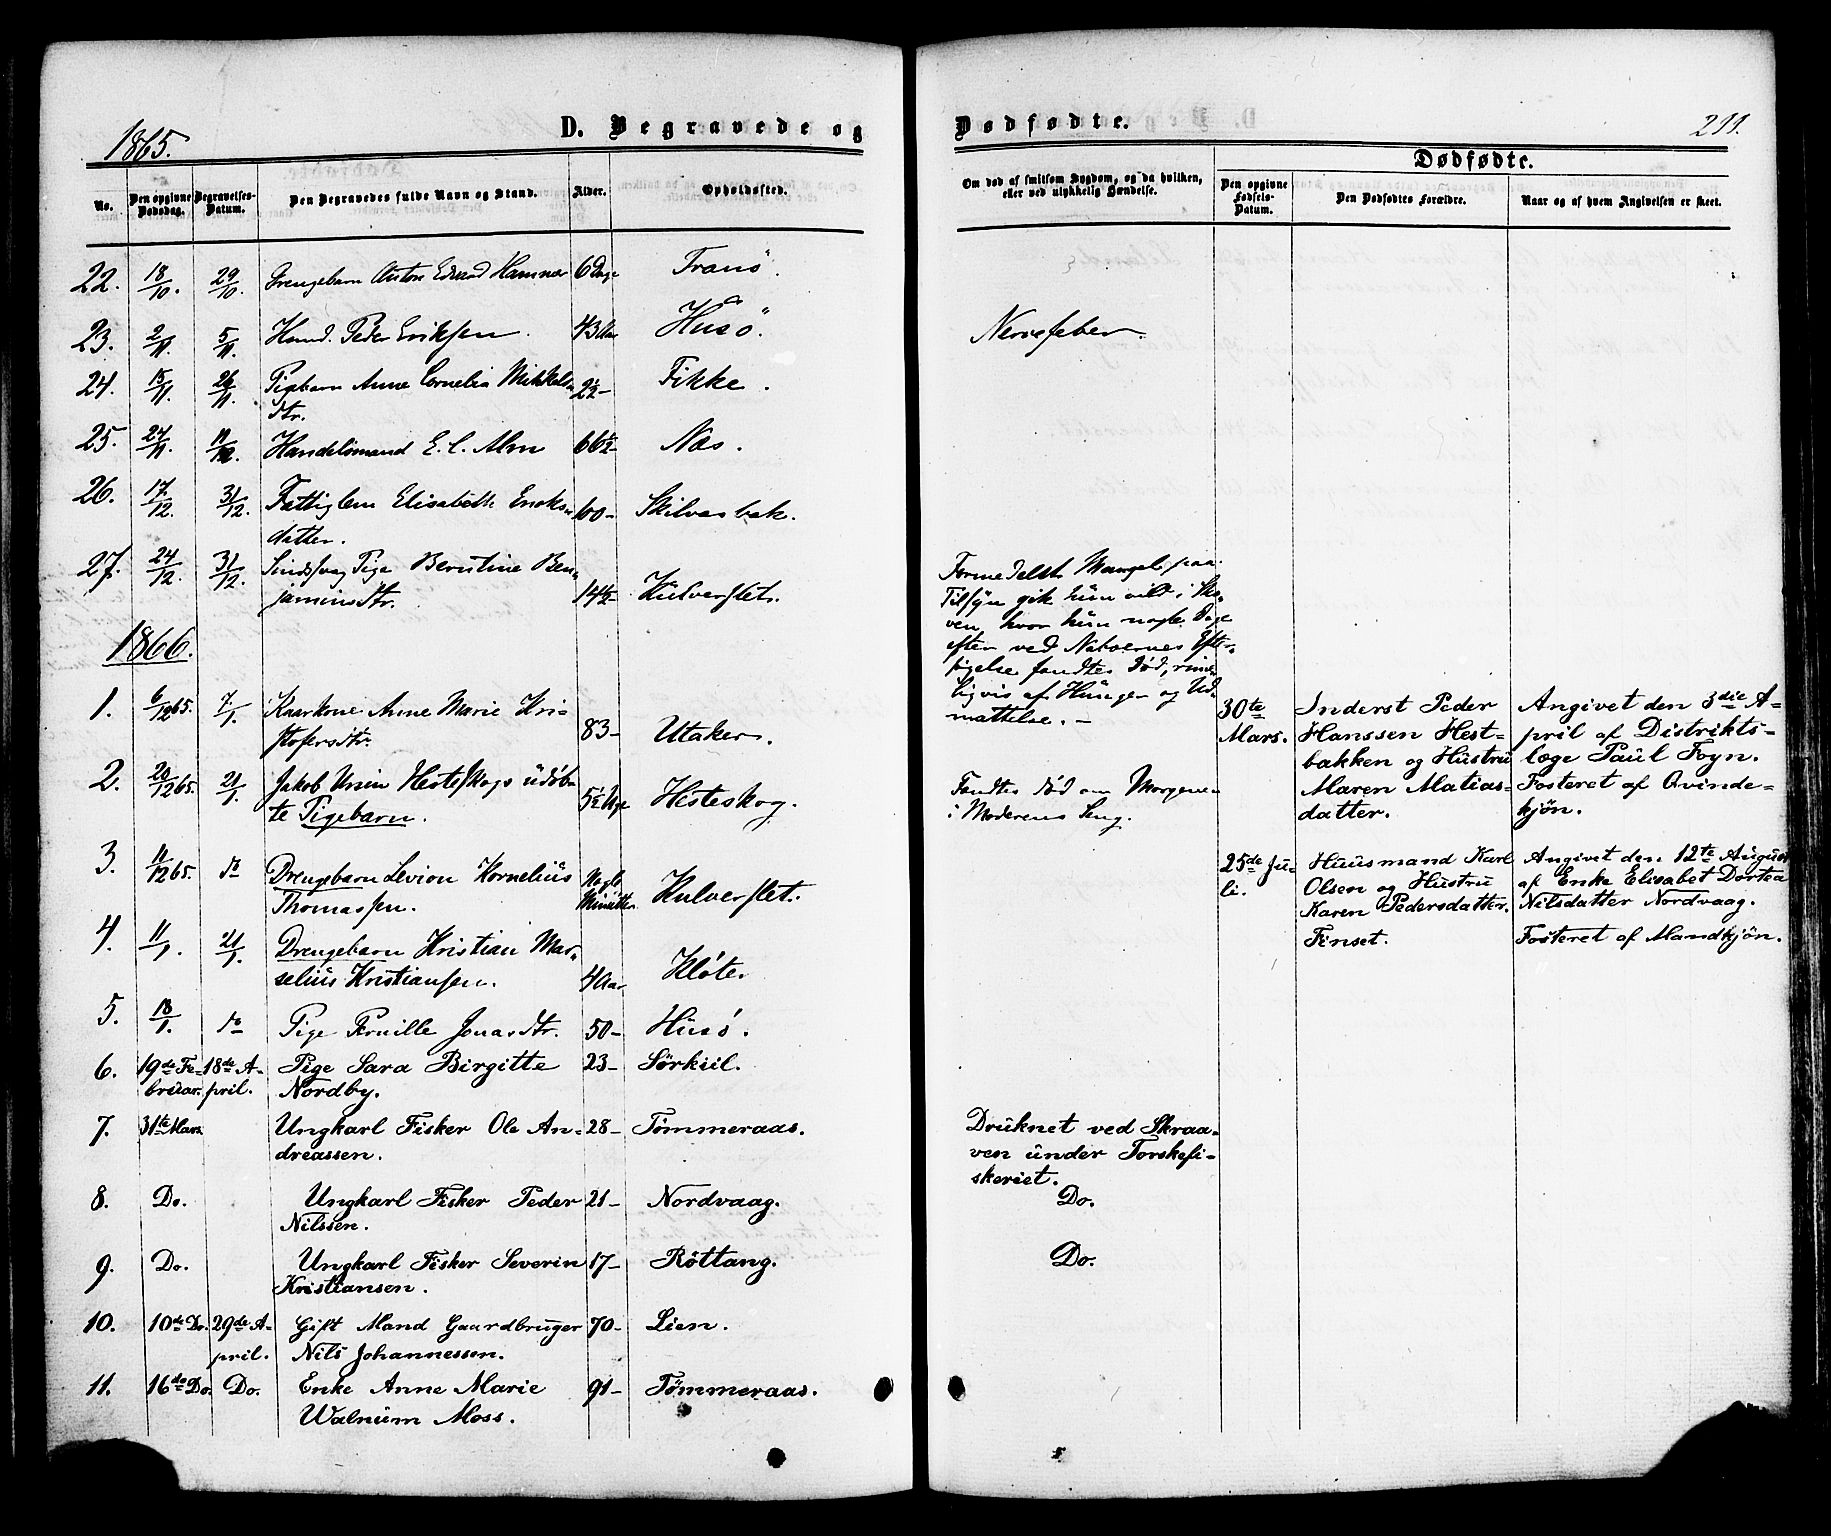 1865.
D. Begravede og
No.
Den opgivne Dødsdag.
Begravelses-Datum.
Den Begravedes fulde Navn og Stand.
Alder.
Opholdssted.
22. 18/10. 29/10. Drengebarn Anton Edvard Hammer 6 Dage Tranö.
23. 2/11. 5/11. Huusmd. Peder Eriksen. 43 Aar Husö.
24. 15/11. 26/11. Pigebarn Anne Cornelia Mikkels- 2½- Fikke.
dtr.
25. 24/11. 11/12. Handelsmand E. C. Alm 66½- Næs.
26. 17/12. 31/12. Fattiglem Elisabeth Enoks- 60- Skilvasbak.
datter.
27. 24/12. 31/12. Sindssvag Pige Berntine Ben-
jaminsdtr. 14½- Kulverslet.
1866.
1. 6/12 65. 7/1. Kaarkone Anne Marie Kri-
stofersdtr. 83- Utaker.
2. 20/12 65. 21/1. Jakob Unin Hesteskogs udøb-
te Pigebarn. 5½ Uge Hesteskog.
3. 11/12 65. do Drengebarn Levion Kornelius Nogle
Thomassen. Minutter Kulverslet.
4. 11/1. 21/1. Drengebarn Kristian Mar-
selius Kristiansen. 4 Aar Kløte.
5. 13/1. do Pige Pernille Jonasdtr. 50- Husø.
6. 19de Fe- 18de A- Pige Sara Birgitte 23- Sörkiil.
bruar. pril. Nordby.
7. 31te Mars Ungkarl Fisker Ole An- 28- Tømmeraas.
dreassen.
8. Do. Ungkarl Fisker Peder 21- Nordvaag.
Nilssen.
9. Do. Ungkarl Fisker Severin 17- Röttang.
Kristiansen.
10. 10de Do. 29de A- Gift Mand Gaardbruger 70- Lien.
pril. Nils Johannessen.
11. 16de Do. Do. Enke Anne Marie 91- Tømmeraas.
Walnum Moss.
Dødfødte.
211.
Dødfødte.
Om død af smitsom Sygdom, og da hvilken,
eller ved ulykkelig Hændelse.
Den opgivne Fødsels-Datum.
Den Dødfødtes Forældre.
Naar og af hvem Angivelsen er skeet.
Nervefeber.
Formedelst Mangel paa
Tilsyn gik hun vild i Sko-
ven, hvor hun nogle Dage
efter ved Naboernes Efter-
søgelse fandtes død, rime-
ligvis af Hunger og Ud-
mattelse. -
Fandtes død om Morgenen
i Moderens Seng.
Druknet ved Skraa-
ven under Torskefi-
skeriet.
Do.
Do.
30te
Mars.
Inderst Peder
Hanssen Hest-
bakken og Hustru
Maren Matias-
datter.
Angivet den 3die A-
pril af Distrikts-
læge Paul Foyn.
Fosteret af Qvinde-
kjön.
25de Ju-
li.
Huusmand Karl
Olsen og Hustru
Karen Pedersdatter
Finset.
Angivet den 12te August
af Enke Elisabet Dortea
Nilsdatter Nordvaag.
Fosteret af Mandkjön.